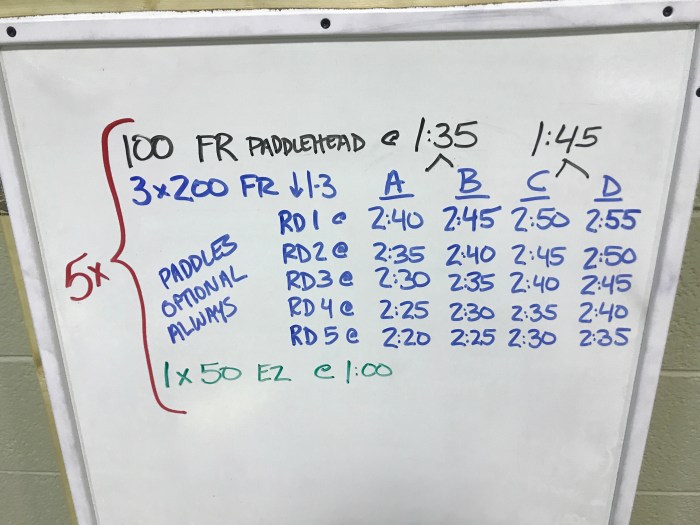 100 FR PADDLEHEAD @ 1:35 1:45
3x200 FR ↓1-3 A B C D
RD1 @ 2:40 2:45 2:50 2:55
RD2 @ 2:35 2:40 2:45 2:50
RD3 @ 2:30 2:35 2:40 2:45
RD4 @ 2:25 2:30 2:35 2:40
RD5 @ 2:20 2:25 2:30 2:35
PADDLES
OPTIONAL
ALWAYS
5x
1x50 EZ @ 1:00